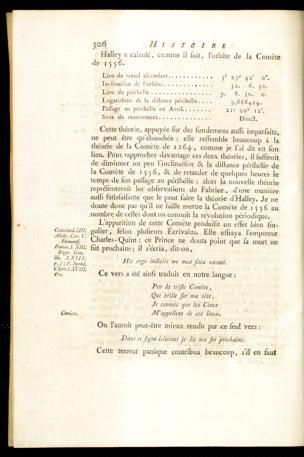 506 HISTOIRE
Halley a calculé, comme il suit, l'orbite de la Comète
de 1556.
Lieu du nœud ascendant............ 5ˢ 25° 42′ 0″.
Inclinaison de l'orbite............ 32. 6. 30.
Lieu du périhélie............ 9. 8. 50. 0.
Logarithme de la distance périhélie...... 9,666424.
Passage au périhélie en Avril........ 21ʲ 20ʰ 12′.
Sens du mouvement............ Direct.
Cette théorie, appuyée sur des fondemens aussi imparfaits,
ne peut être qu'ébauchée : elle ressemble beaucoup à la
théorie de la Comète de 1264, comme je l'ai dit en son
lieu. Pour rapprocher davantage ces deux théories, il suffiroit
de diminuer un peu l'inclinaison & la distance périhélie de
la Comète de 1556, & de retarder de quelques heures le
temps de son passage au périhélie : alors la nouvelle théorie
représenteroit les observations de Fabrice, d'une manière
aussi satisfaisante que le peut faire la théorie d'Halley. Je ne
doute donc pas qu'il ne faille mettre la Comète de 1556 au
nombre de celles dont on connoît la révolution périodique.
L'apparition de cette Comète produisit un effet bien sin-
gulier, selon plusieurs Écrivains. Elle effraya l'empereur
Charles-Quint : ce Prince ne douta point que sa mort ne
fût prochaine; il s'écria, dit-on,
His ergo indiciis me mea fata vocant.
Ce vers a été ainsi traduit en notre langue :
Par la triste Comète,
Qui brille sur ma tête,
Je connois que les Cieux
M'appellent de ces lieux.
On l'auroit peut-être mieux rendu par ce seul vers :
Dans ce signe éclatant je lis ma fin prochaine.
Cette terreur panique contribua beaucoup, s'il en faut